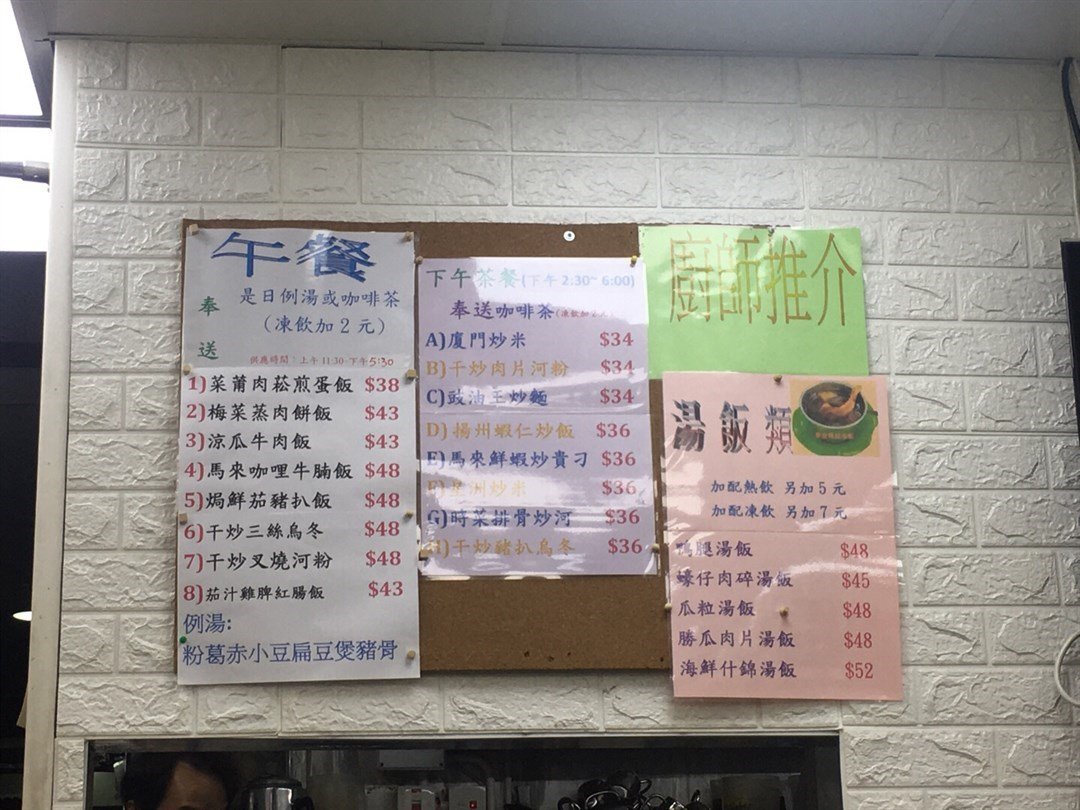 午餐
奉送
是日例湯或咖啡茶
(凍飲加2元)
供應時間：上午11:30-下午5:30
1)菜莆肉菘煎蛋飯 $38
2)梅菜蒸肉餅飯 $43
3)涼瓜牛肉飯 $43
4)馬來咖哩牛腩飯 $48
5)焗鮮茄豬扒飯 $48
6)干炒三絲烏冬 $48
7)干炒叉燒河粉 $48
8)茄汁雞脾紅腸飯 $43
例湯:
粉葛赤小豆扁豆煲豬骨
下午茶餐(下午2:30~6:00)
奉送咖啡茶(凍飲加2元)
A)廈門炒米 $34
B)干炒肉片河粉 $34
C)豉油王炒麵 $34
D)揚州蝦仁炒飯 $36
E)馬來鮮蝦炒貴刁 $36
F)星洲炒米 $36
G)時菜排骨炒河 $36
H)干炒豬扒烏冬 $36
廚師推介
湯飯類
加配熱飲 另加5元
加配凍飲 另加7元
鴨腿湯飯 $48
蠔仔肉碎湯飯 $45
瓜粒湯飯 $48
勝瓜肉片湯飯 $48
海鮮什錦湯飯 $52